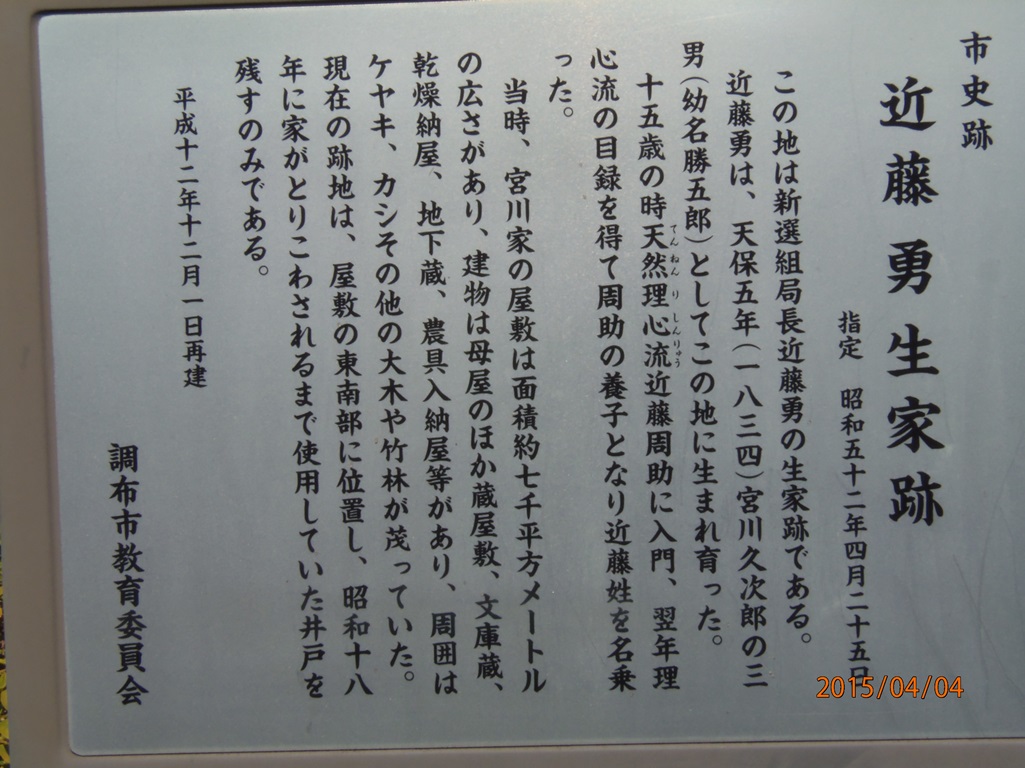 市史跡
近藤勇生家跡
指定 昭和五十二年四月二十五日
この地は新選組局長近藤勇の生家跡である。
近藤勇は、天保五年(一八三四)宮川久次郎の三
男(幼名勝五郎)としてこの地に生まれ育った。
十五歳の時天然理心流近藤周助に入門、翌年理
てんねんりしんりゅう
心流の目録を得て周助の養子となり近藤姓を名乗
った。
当時、宮川家の屋敷は面積約七千平方メートル
の広さがあり、建物は母屋のほか蔵屋敷、文庫蔵、
乾燥納屋、地下蔵、農具入納屋等があり、周囲は
ケヤキ、カシその他の大木や竹林が茂っていた。
現在の跡地は、屋敷の東南部に位置し、昭和十八
年に家がとりこわされるまで使用していた井戸を
残すのみである。
平成十二年十二月一日再建
調布市教育委員会
2015/04/04